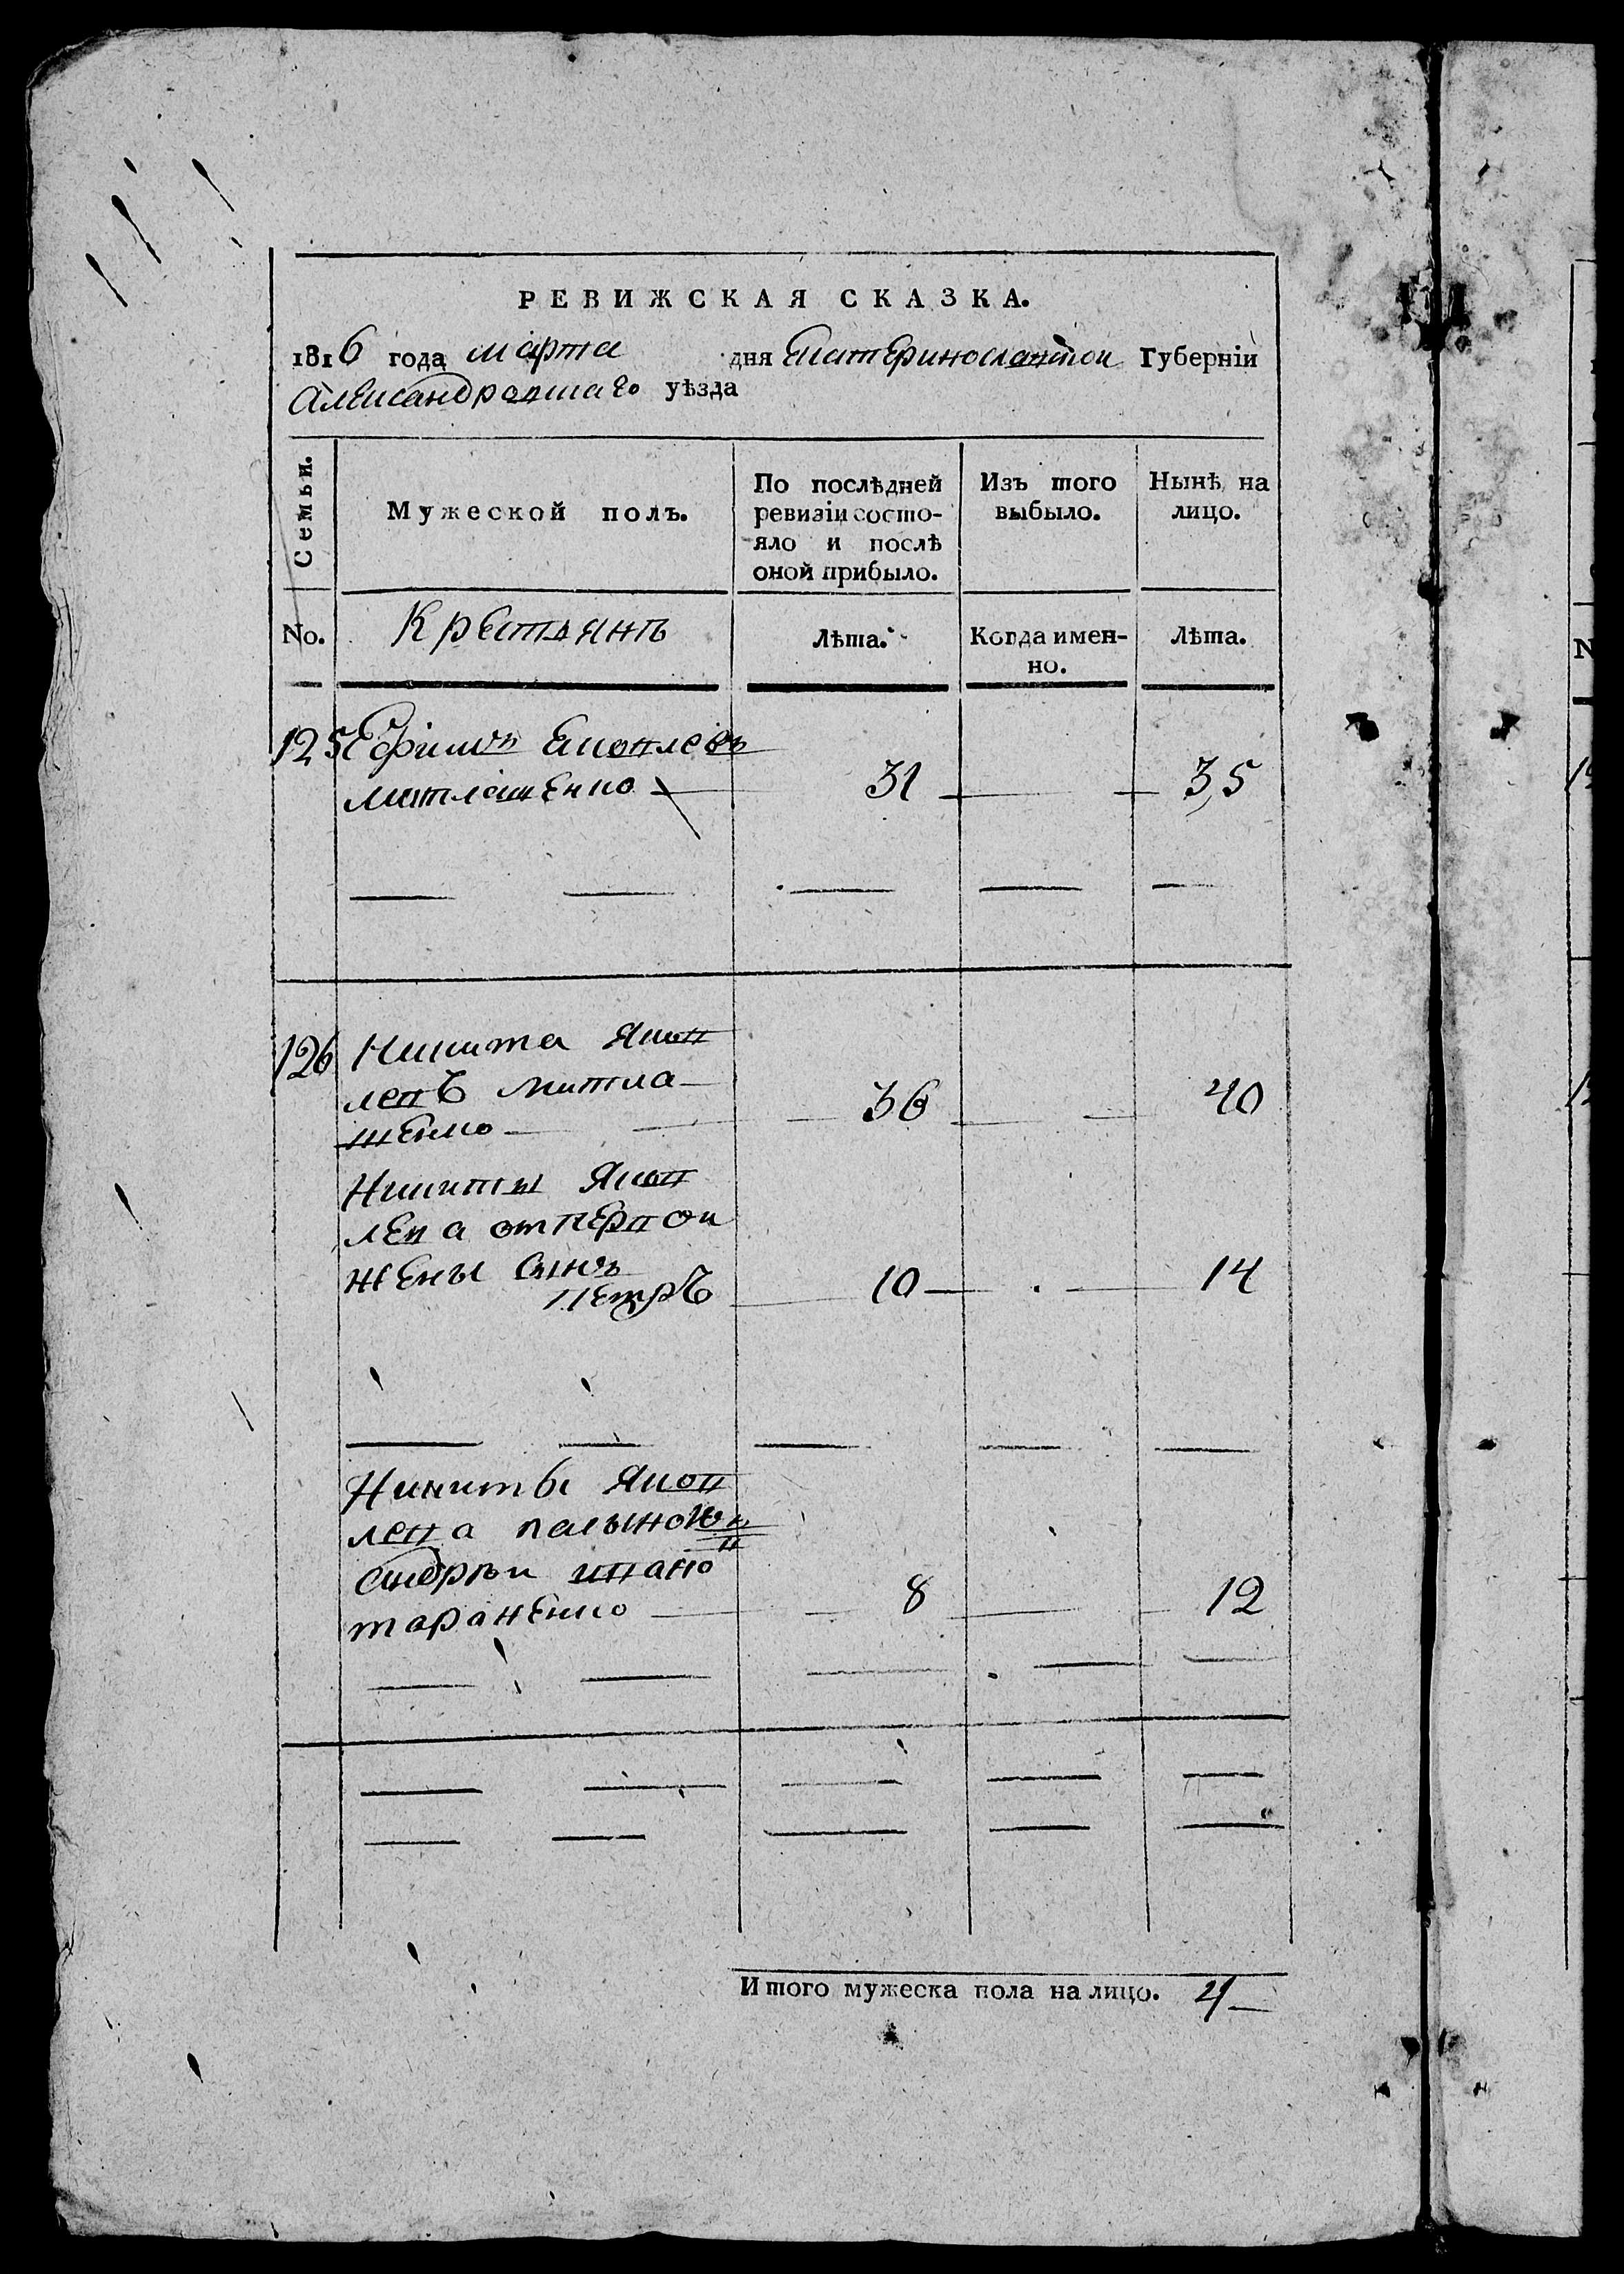 РЕВИЖСКАЯ СКАЗКА.
1816 года марта дня Екатеринославской Губернїи
Александровскаго уѣзда
Семьи.
Мужеской полъ.
По послѣдней ревизїи состо-яло и послѣ оной прибыло.
Изъ того выбыло.
Нынѣ на лицо.
No.
Крестьянъ
Лѣта.
Когда имен-но.
Лѣта.
125 Ефимъ Яковлевъ
Митлашенко 31 35
126 Никита Яков
левъ Митла
шенко 36 40
Никиты Яков
лева от первой
жены сынъ
Петръ 10 14
Никиты Яков
лева
Андрей Ивано
тараненко 8 12
Итого мужеска пола на лицо. 4